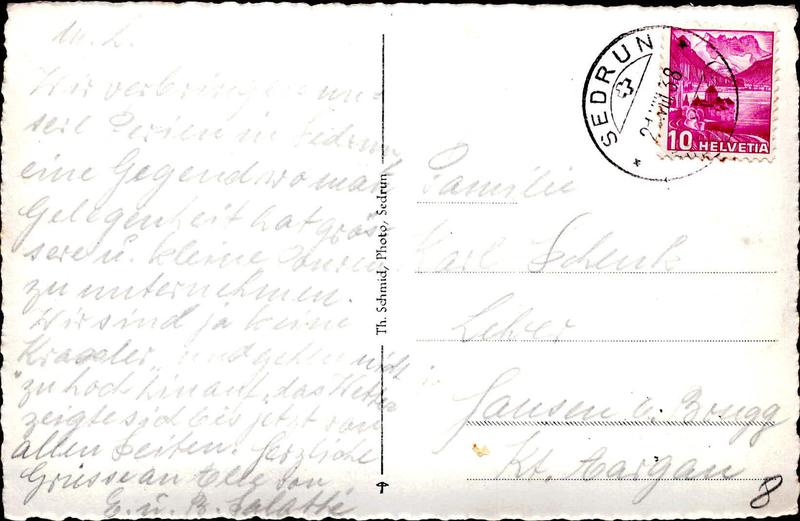 M. L.
Wir verbringen un
sere Ferien in Sedrun
eine Gegend wo man
Gelegenheit hat gräs
sere u. kleine Touren
zu unternehmen.
Wir sind ja keine
"Kraxler" und gehen nicht
zu hoch hinauf, das Wetter
zeigte sich bis jetzt von
allen Seiten. Herzliche
Grüsse an Alle von
E. u. B.
Th. Schmid, Photo, Sedrun
SEDRUN
VIII 38
10 HELVETIA
Familie
Karl Schenk
Lehrer
in
Hausen b. Brugg
Kt. Aargau
8